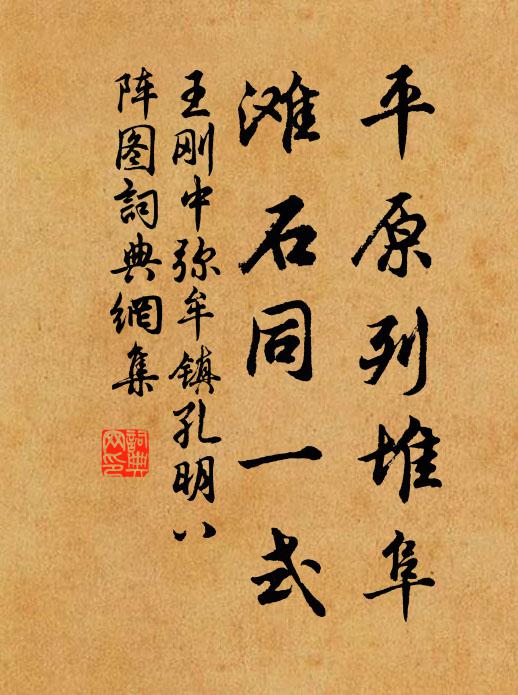 平原列堆阜
滩石同一式
王刚中弥牟镇孔明八
阵图詞典網集
詞典
网印